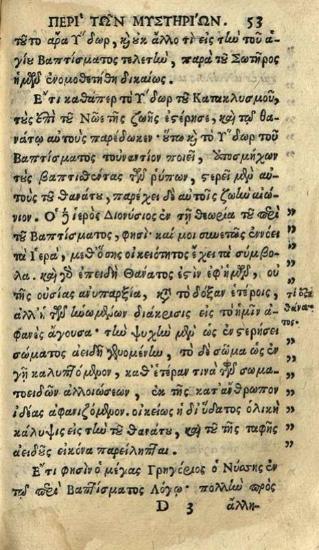 ΠΕΡΙ' ΤΩΝ ΜΥΣΤΗΡΙΩΝ. 53
τοῦτο ἄρα Ὕδωρ, καὶ οὐκ ἄλλο τι εἰς τὴν τοῦ ἁ-
γίου Βαπτίσματος τελετὴν, παρὰ τοῦ Σωτῆρος
ἡμῶν ἐνομοθετήθη δικαίως.
Ἔτι καθάπερ τὸ Ὕδωρ τοῦ Κατακλυσμοῦ,
τοὺς ἐπὶ τοῦ Νῶε τῆς ζωῆς ἐστέρησε, καὶ τῷ θα-
νάτῳ αὐτοὺς παρέδωκεν· οὕτω καὶ τὸ Ὕδωρ τοῦ
Βαπτίσματος τοὐναντίον ποιεῖ, Ὑποσμῆχον
τοὺς βαπτισθέντας τῶν ῥύπων, στερεῖ μὲν αὐ-
τοὺς τοῦ θανάτου, παρέχει δὲ αὐτοῖς ζωὴν αἰώ-
νιον. Ὁ ἱερὸς Διονύσιος ἐν τῇ θεωρίᾳ τοῦ περὶ
τοῦ Βαπτίσματος, φησί· καί μοι συνετῶς ἐννόει
τὰ Ἱερὰ, μεθ' ὅσης οἰκειότητος ἔχει τὰ σύμβο-
λα. καὶ γὰρ ἐπειδὴ Θάνατος ἐστὶν ἐφ' ἡμῶν, οὐ
τῆς οὐσίας ἀνυπαρξία, κατὰ τὸ δόξαν ἑτέροις,
ἀλλ' ἡ τῶν ἡνωμένων διάκρισις εἰς τὸ ἡμῖν ἀ-
φανὲς ἄγουσα· τὴν ψυχὴν μὲν ὡς ἐν στερήσει
σώματος ἀειδῆ γινομένην, τὸ δὲ σῶμα ὡς ἐν
γῇ καλυπτόμενον, καθ' ἑτέραν τινὰ τῶν σωμα-
τοειδῶν ἀλλοιώσεων, ἐκ τῆς κατ' ἄνθρωπον
ἰδέας ἀφανιζόμενον. οἰκείως ἡ δι' ὕδατος ὁλικὴ
κάλυψις εἰς τὴν τοῦ θανάτου, καὶ τοῦ τῆς ταφῆς
ἀειδοῦς εἰκόνα παρείληπται.
Ἔτι φησὶν ὁ μέγας Γρηγόριος ὁ Νύσσης ἐν
τῷ περὶ Βαπτίσματος Λόγῳ· πολλὴν πρὸς
D 3 ἄλλη-